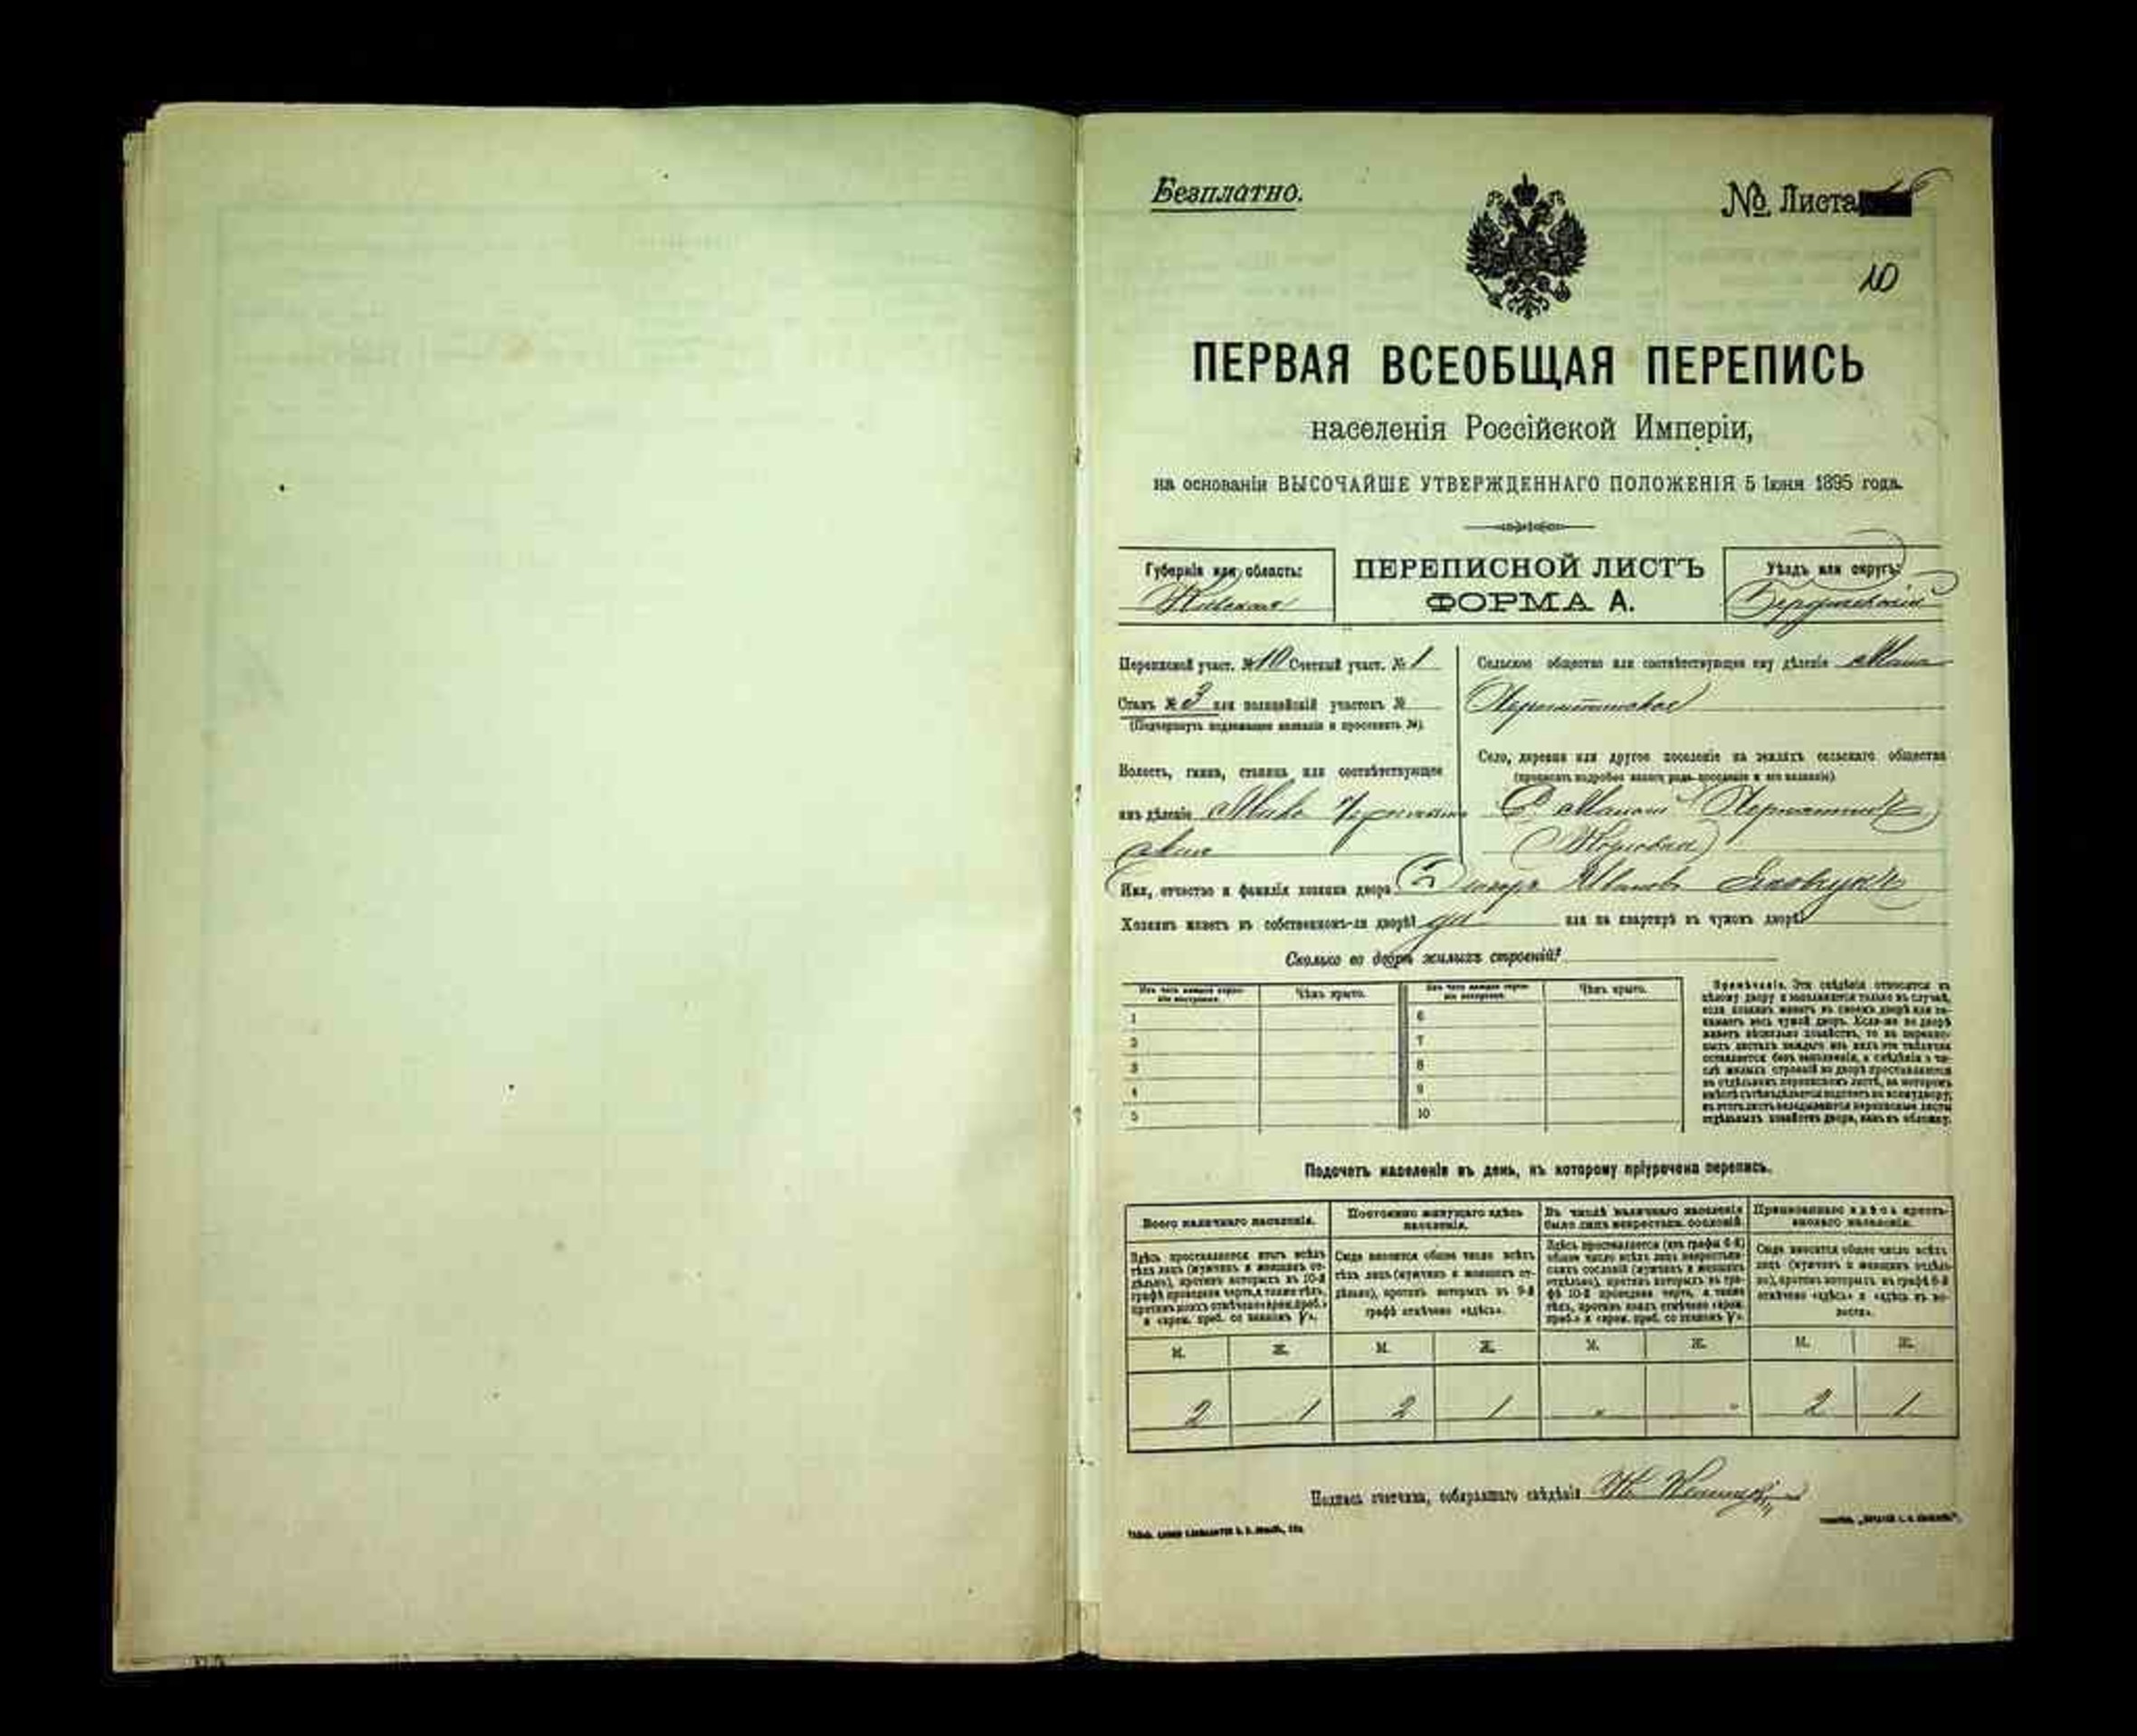 Безплатно.
№ Листа
10
ПЕРВАЯ ВСЕОБЩАЯ ПЕРЕПИСЬ
населенія Россійской Имперіи,
на основаніи ВЫСОЧАЙШЕ УТВЕРЖДЕННАГО ПОЛОЖЕНІЯ 5 Іюня 1895 года.
Губернія или область:
Кіевская
ПЕРЕПИСНОЙ ЛИСТЪ
ФОРМА А.
Уѣздъ или округъ:
Бердичевскій
Переписной участ. № 10 Счетный участ. № 1
Станъ № 3 или полицейскій участокъ №
(Подчеркнуть подлежащее названіе и проставить №).
Волость, гмина, станица или соотвѣтствующее
имъ дѣленіе
Сельское общество или соотвѣтствующее ему дѣленіе
Село, деревня или другое поселеніе на земляхъ сельскаго общества
(прописать подробно какого рода поселеніе и его названіе)
Имя, отчество и фамилія хозяина двора Иванов
Хозяинъ живетъ въ собственномъ-ли дворѣ? да или на квартирѣ въ чужомъ дворѣ?
Сколько во дворѣ жилыхъ строеній?
Изъ чего каждое строеніе построено. Чѣмъ крыто. Изъ чего каждое строеніе построено. Чѣмъ крыто.
1 6
2 7
3 8
4 9
5 10
Примѣчаніе. Эти свѣдѣнія относятся къ
цѣлому двору и заполняются только въ случаѣ,
если хозяинъ живетъ въ своемъ дворѣ или за-
нимаетъ весь чужой дворъ. Если-же во дворѣ
живетъ нѣсколько хозяйствъ, то на перепис-
ныхъ листахъ каждаго изъ нихъ эта табличка
оставляется безъ заполненія, а свѣдѣнія о чи-
слѣ жилыхъ строеній во дворѣ проставляются
на отдѣльномъ переписномъ листѣ, на которомъ
вмѣстѣ съ тѣмъ дѣлается подсчетъ по всему двору;
въ этотъ листъ вкладываются переписные листы
отдѣльныхъ хозяйствъ двора, какъ въ обложку.
Подсчетъ населенія въ день, къ которому пріурочена перепись.
Всего наличнаго населенія.
Здѣсь проставляется итогъ всѣхъ
тѣхъ лицъ (мужчинъ и женщинъ от-
дѣльно), противъ которыхъ въ 10-й
графѣ проведена черта, а также тѣхъ,
противъ коихъ отмѣчено «врем. преб.»
и «врем. преб. со знакомъ V».
Постоянно живущаго здѣсь
населенія.
Сюда вносится общее число всѣхъ
тѣхъ лицъ (мужчинъ и женщинъ от-
дѣльно), противъ которыхъ въ 9-й
графѣ отмѣчено «здѣсь».
Въ числѣ наличнаго населенія
было лицъ некрестьян. сословій.
Здѣсь проставляется (изъ графы 6-й)
общее число всѣхъ лицъ некрестьян-
скихъ сословій (мужчинъ и женщинъ
отдѣльно), противъ которыхъ въ гра-
фѣ 10-й проведена черта, а также
тѣхъ, противъ коихъ отмѣчено «врем.
преб.» и «врем. преб. со знакомъ V».
Приписаннаго здѣсь кресть-
янскаго населенія.
Сюда вносится общее число всѣхъ
лицъ (мужчинъ и женщинъ отдѣль-
но), противъ которыхъ въ графѣ 8-й
отмѣчено «здѣсь» и «здѣсь въ во-
лости».
М. Ж. М. Ж. М. Ж. М. Ж.
2 1 2 1 " " 2 1
Подпись счетчика, собиравшаго свѣдѣнія